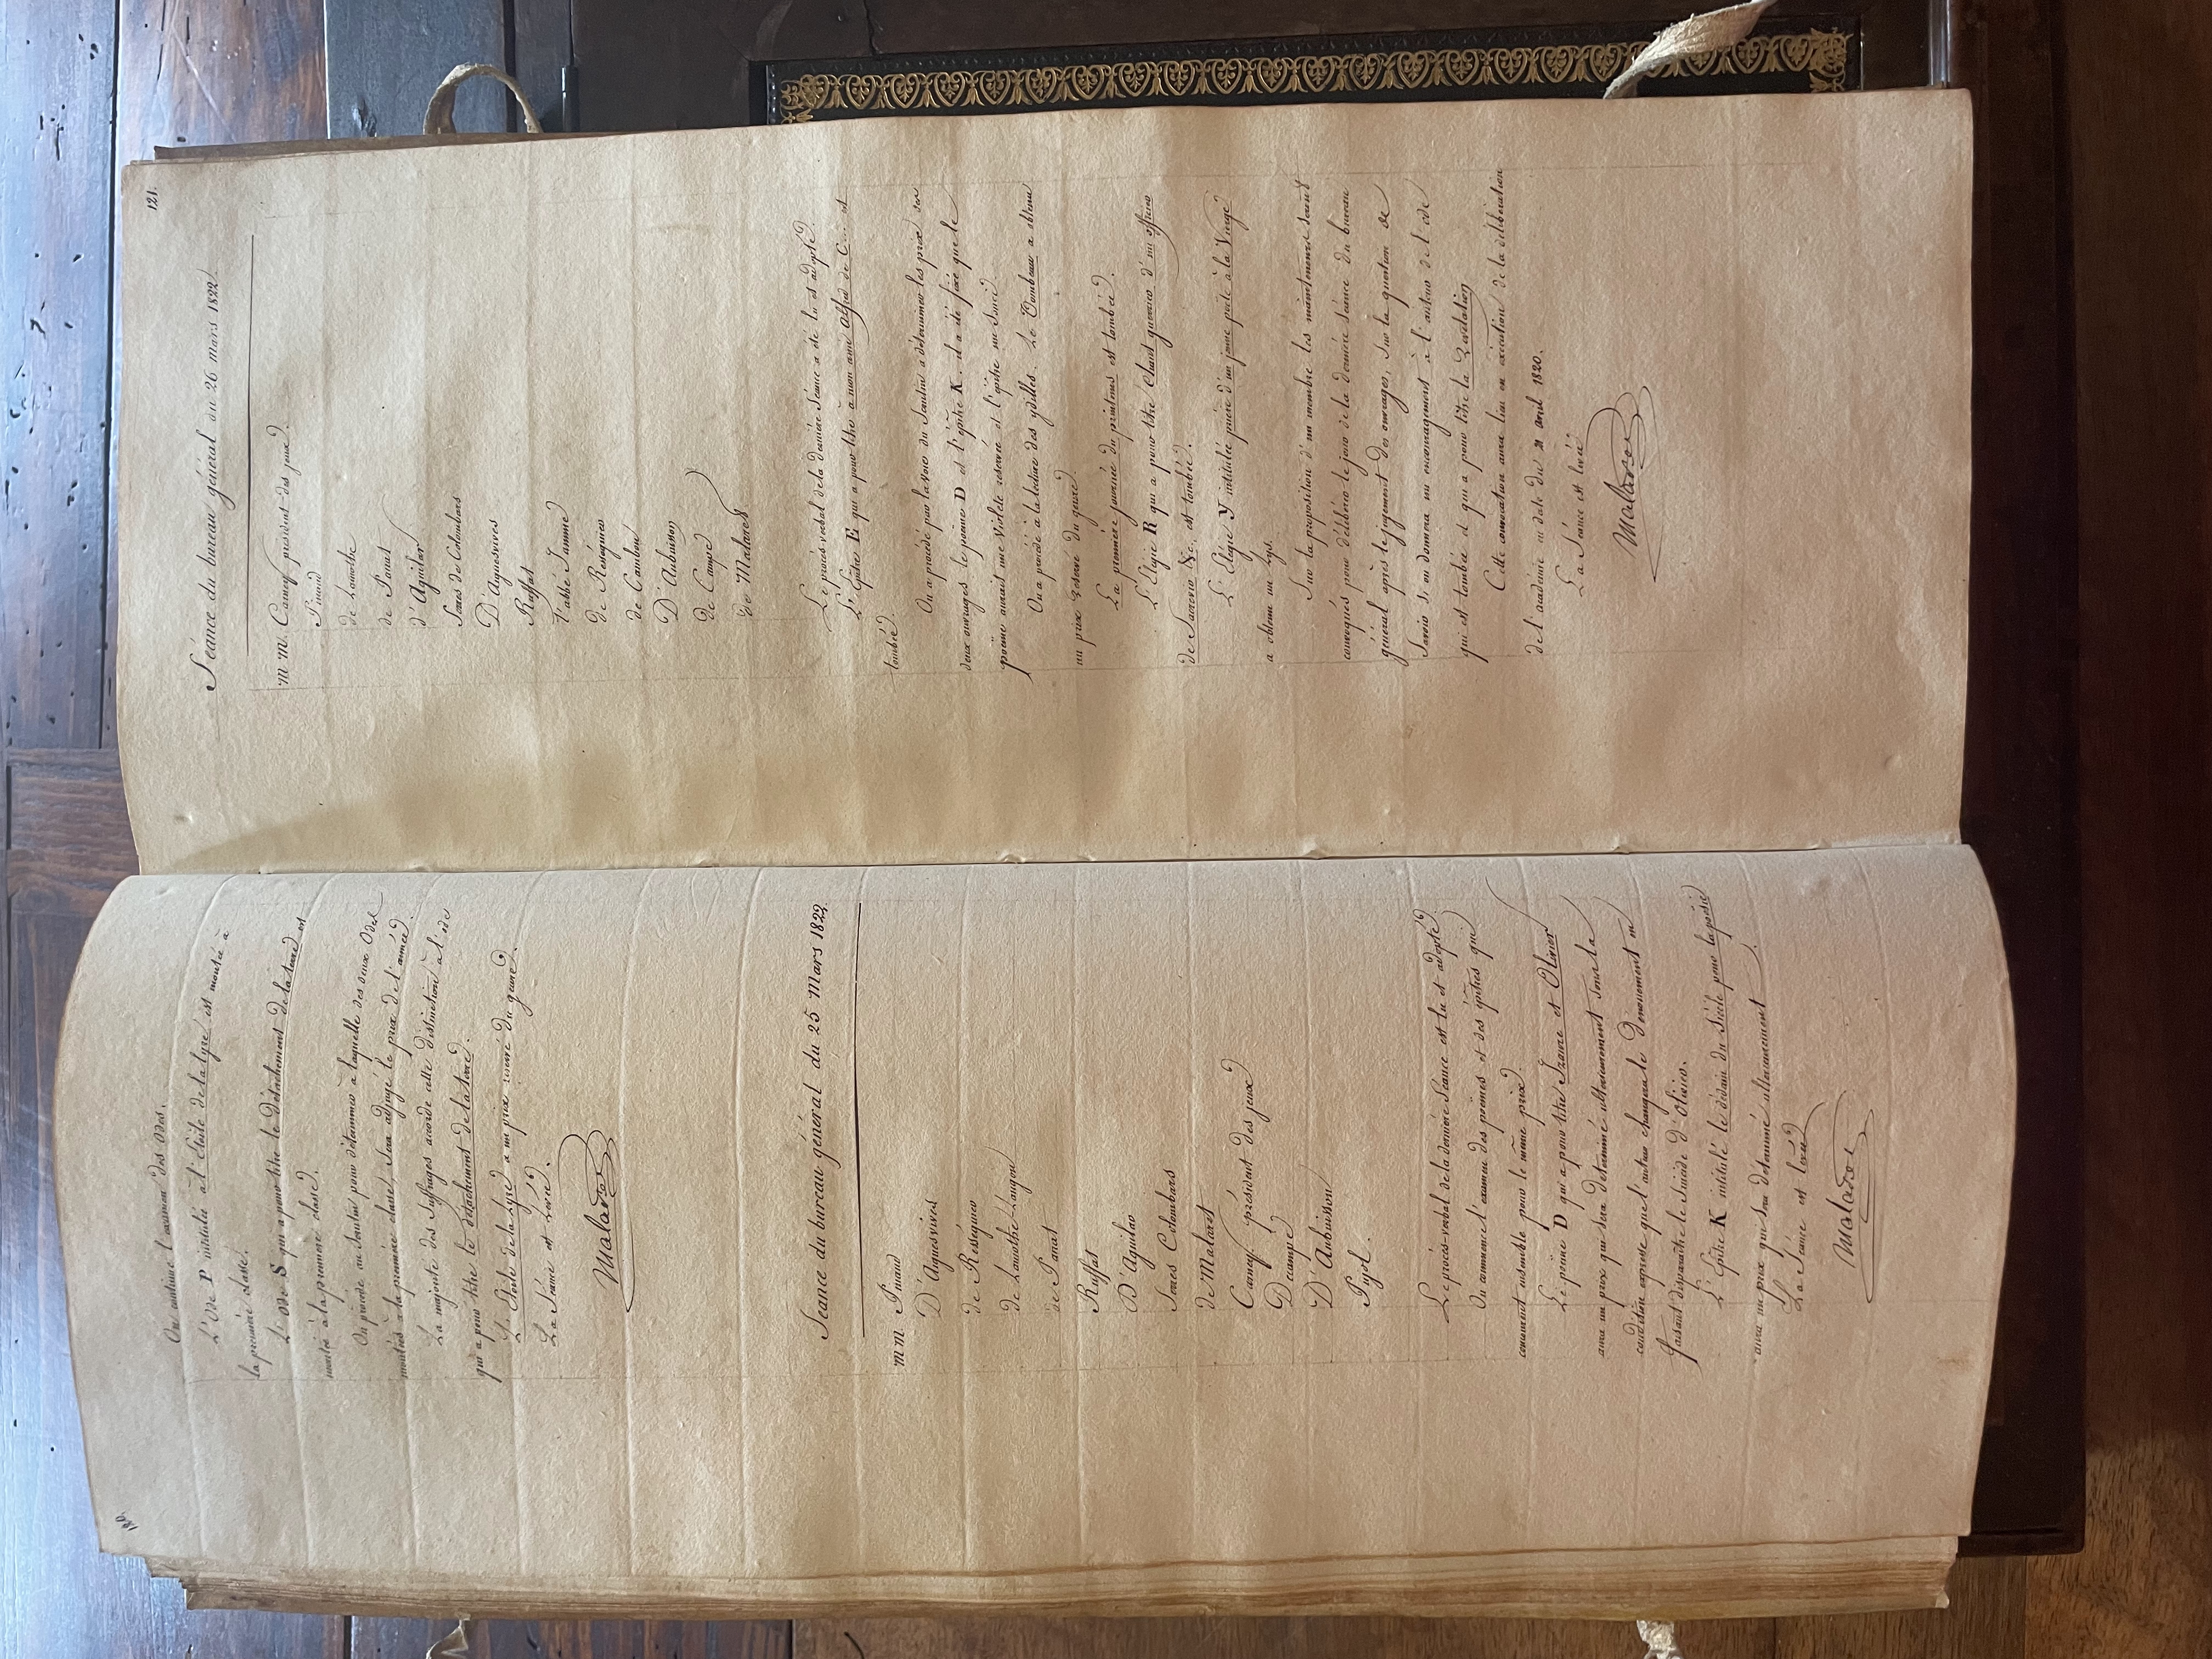 120.
On continue l'examen des odes.
L'Ode P intitulée à l'Etoile de la lyre est montée à
la première classe.
L'ode S qui a pour titre le Détachement de la terre est
montée à la première classe.
On procède au scrutin pour déterminer à laquelle des deux Odes
montées à la première classe, sera adjugé le prix de l'année.
La majorité des suffrages accorde cette distinction à l'ode
qui a pour titre le détachement de la terre.
L'Etoile de la Lyre a un prix réservé du genre.
La séance est levée.
Malaret
Séance du bureau général du 25 Mars 1822.
m m. Pinaud
D'Aguesvives
de Rességuier
de Lamothe-Langon
de Panat
Ruffat
D'Aguilar
Serres Colombars
de Malaret
Carney président des jeux
Decampe
D'Aubuisson
Pujol.
Le procès-verbal de la dernière séance est lu et adopté.
On commence l'examen des poèmes et des épitres qui
concourent ensemble pour le même prix.
Le poème D qui a pour titre Izaure et Olivier
aura un prix qui sera déterminé ultérieurement sous la
condition expresse que l'auteur changera le Dénouement en
faisant disparaître le suicide d'Olivier.
L'Epitre K intitulé le dédain du Siècle pour la poésie
aura un prix qui sera déterminé ultérieurement.
La séance est levée
Malaret
121.
Séance du bureau général du 26 mars 1822.
m m. Carney président des jeux.
Pinaud
de Lamothe
de Panat
d'Aguilar
Serres de Colombars
D'Aguesvives
Ruffat
l'abbé Jamme
de Rességuier
de Cambon
D'Aubuisson
de Campe
de Malaret
Le procès verbal de la dernière séance a été lu et adopté.
L'Epitre E qui a pour titre à mon ami Alfred de C... est
tombée.
On a procédé par la voie du scrutin à déterminer les prix des
deux ouvrages le poème D et l'épitre K. il a été fixé que le
poème aurait une Violette réservée et l'épitre un Souci.
On a procédé à la lecture des idylles. Le Tombeau a obtenu
un prix réservé du genre.
La première journée du printems est tombée.
L'Elégie R qui a pour titre Chant guerrier d'un officier
de Souvorow &c. est tombée.
L'Elégie Y intitulée prière d'un jeune poète à la Vierge
a obtenu un Lys.
Sur la proposition d'un membre les mainteneurs seront
convoqués pour délibérer le jour de la dernière séance du bureau
général après le jugement des ouvrages, sur la question de
Savoir si on donnera un encouragement à l'auteur de l'ode
qui est tombée et qui a pour titre la
Cette convocation aura lieu en exécution de la délibération
de l'académie en date du 21 avril 1820.
La séance est levée
Malaret